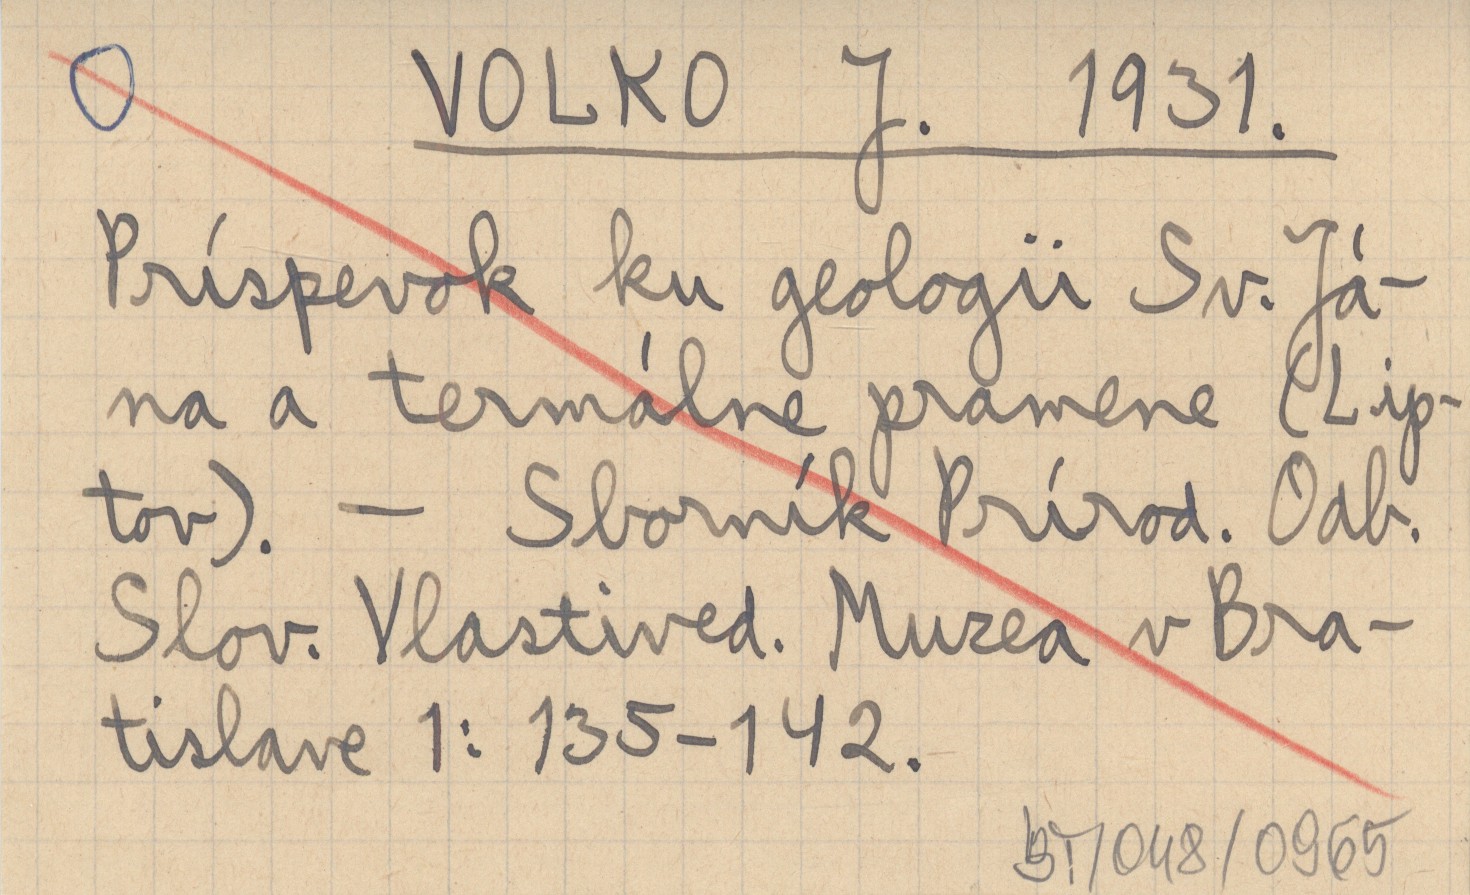 VOLKO J. 1931.
Príspevok ku geologii Sv. Já-
na a termálne pramene (Lip-
tov). — Sborník Prírod. Odb.
Slov. Vlastived. Muzea v Bra-
tislave 1: 135-142.
BT/048/0965